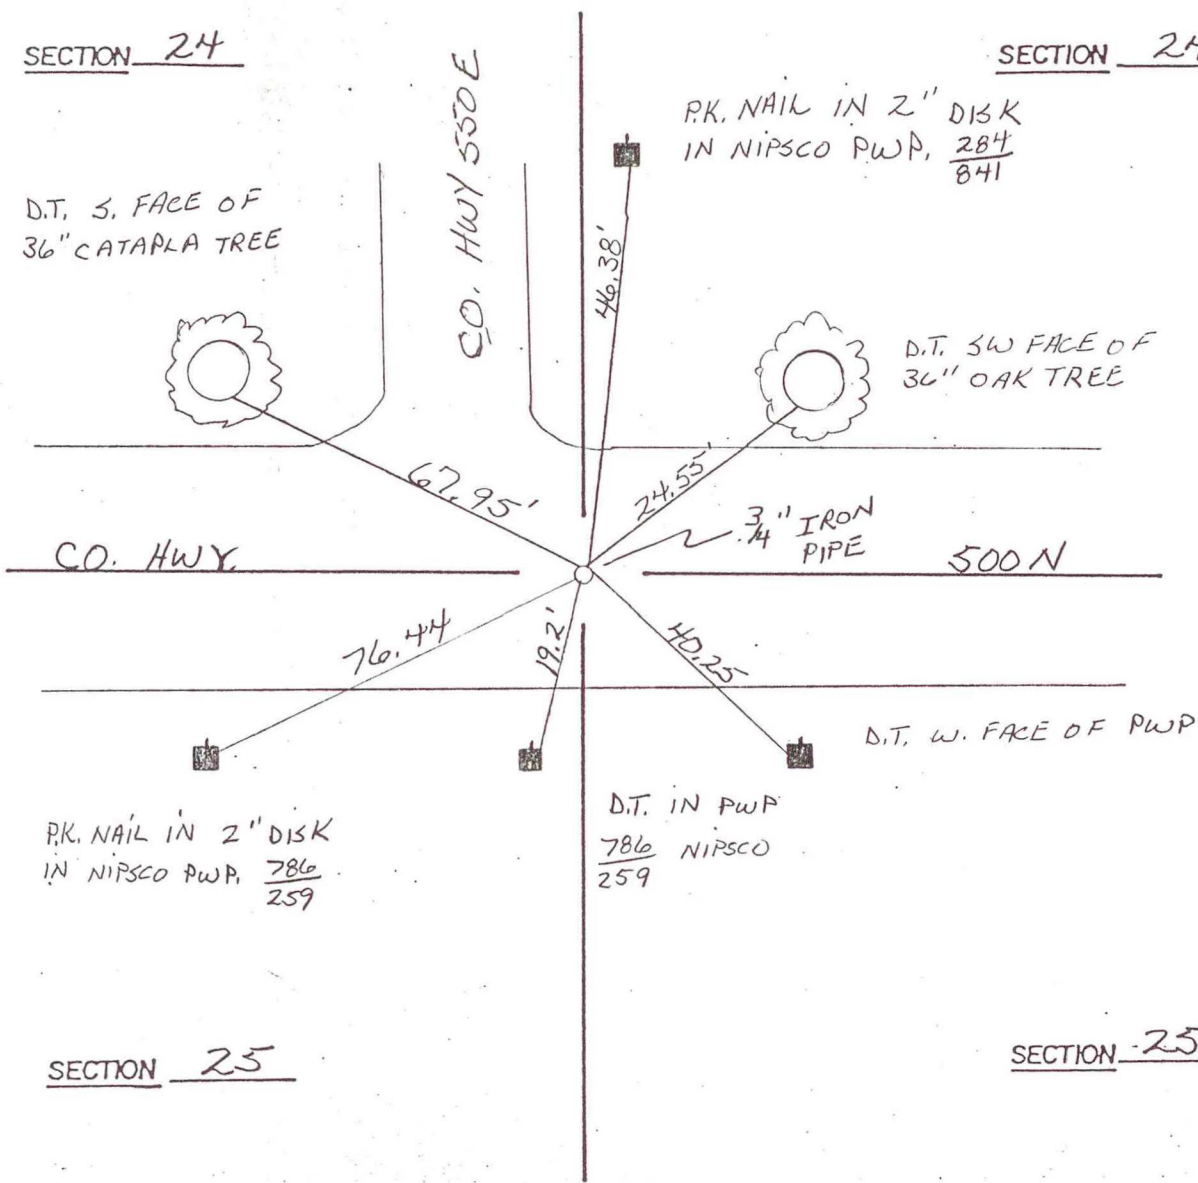 SECTION 24
SECTION 24
CO. HWY 550E
P.K. NAIL IN 2" DISK
IN NIPSCO PWP. 284
841
D.T. S. FACE OF
36" CATAPLA TREE
46.38'
D.T. SW FACE OF
36" OAK TREE
67.95'
24.55'
3/4" IRON
PIPE
CO. HWY.
500 N
76.44
19.2'
40.25
D.T. W. FACE OF PWP
P.K. NAIL IN 2" DISK
IN NIPSCO PWP. 786
259
D.T. IN PWP
786 NIPSCO
259
SECTION 25
SECTION 25